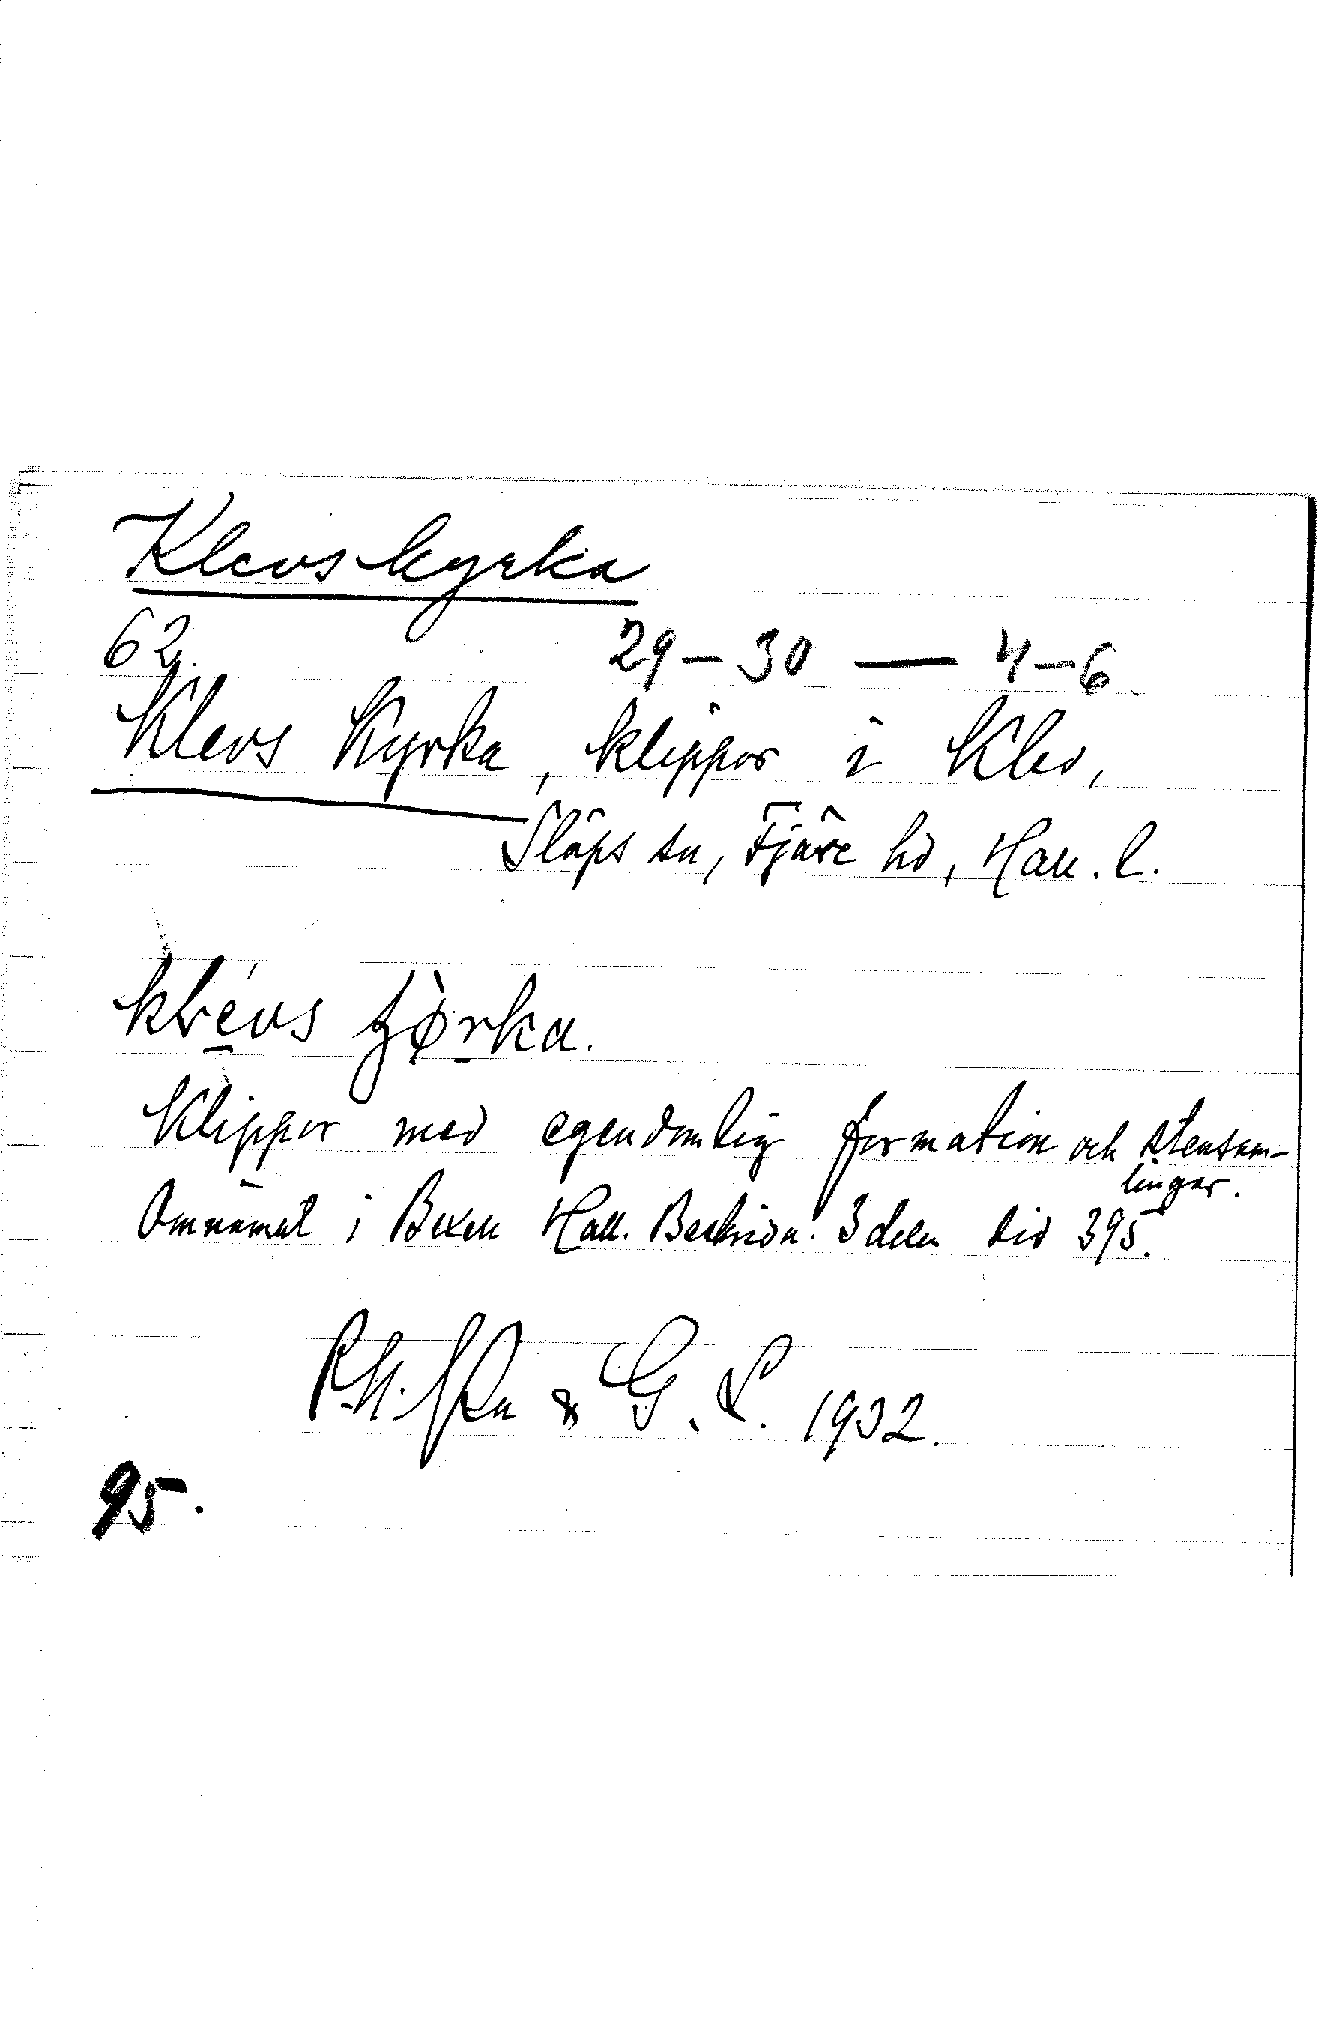 Klevs kyrka
62. 29–30 — 4–6
Klevs Kyrka, klippor i Klev,
Släps sn, Fjäre hd, Hall. l.
klevs ȷørka.
Klippor med egendomlig formation och stensam-
lingar.
Omnämnt i Bexell Hall. Beskrivn. 3 delen sid 395.
& G. L. 1932.
95.